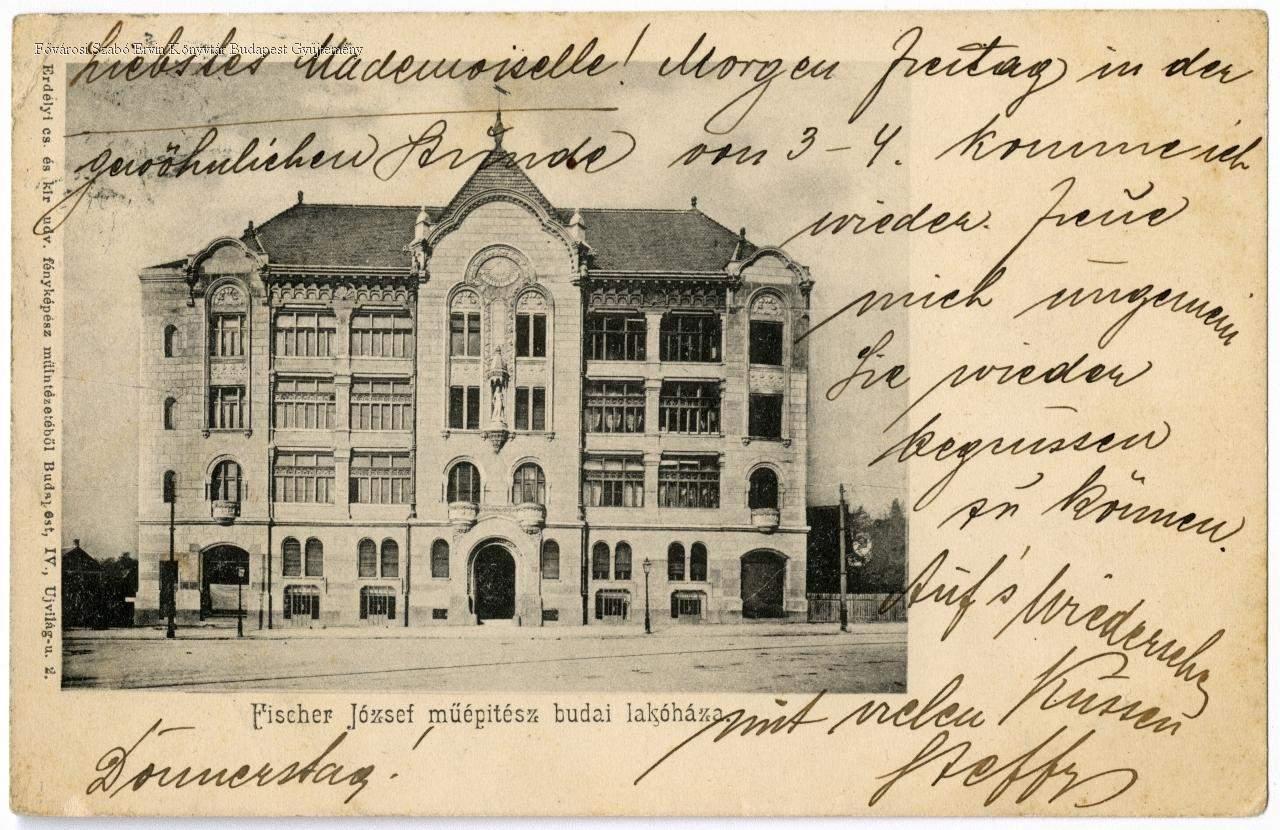 Fővárosi Szabó Ervin Könyvtár Budapest Gyűjtemény
Liebstes Mademoiselle! Morgen Freitag in der
gewöhnlichen Stunde von 3-4. komme ich
wieder. Freue
mich ungemein
Sie wieder
begrussen
zu können.
Auf's Wiedersehn
mit vielen Küssen
Steffy
Donnerstag!
Erdélyi cs. és kir udv. fényképész műintézetéből Budapest, IV., Ujvilág-u. 2.
Fischer József műépitész budai lakóháza.